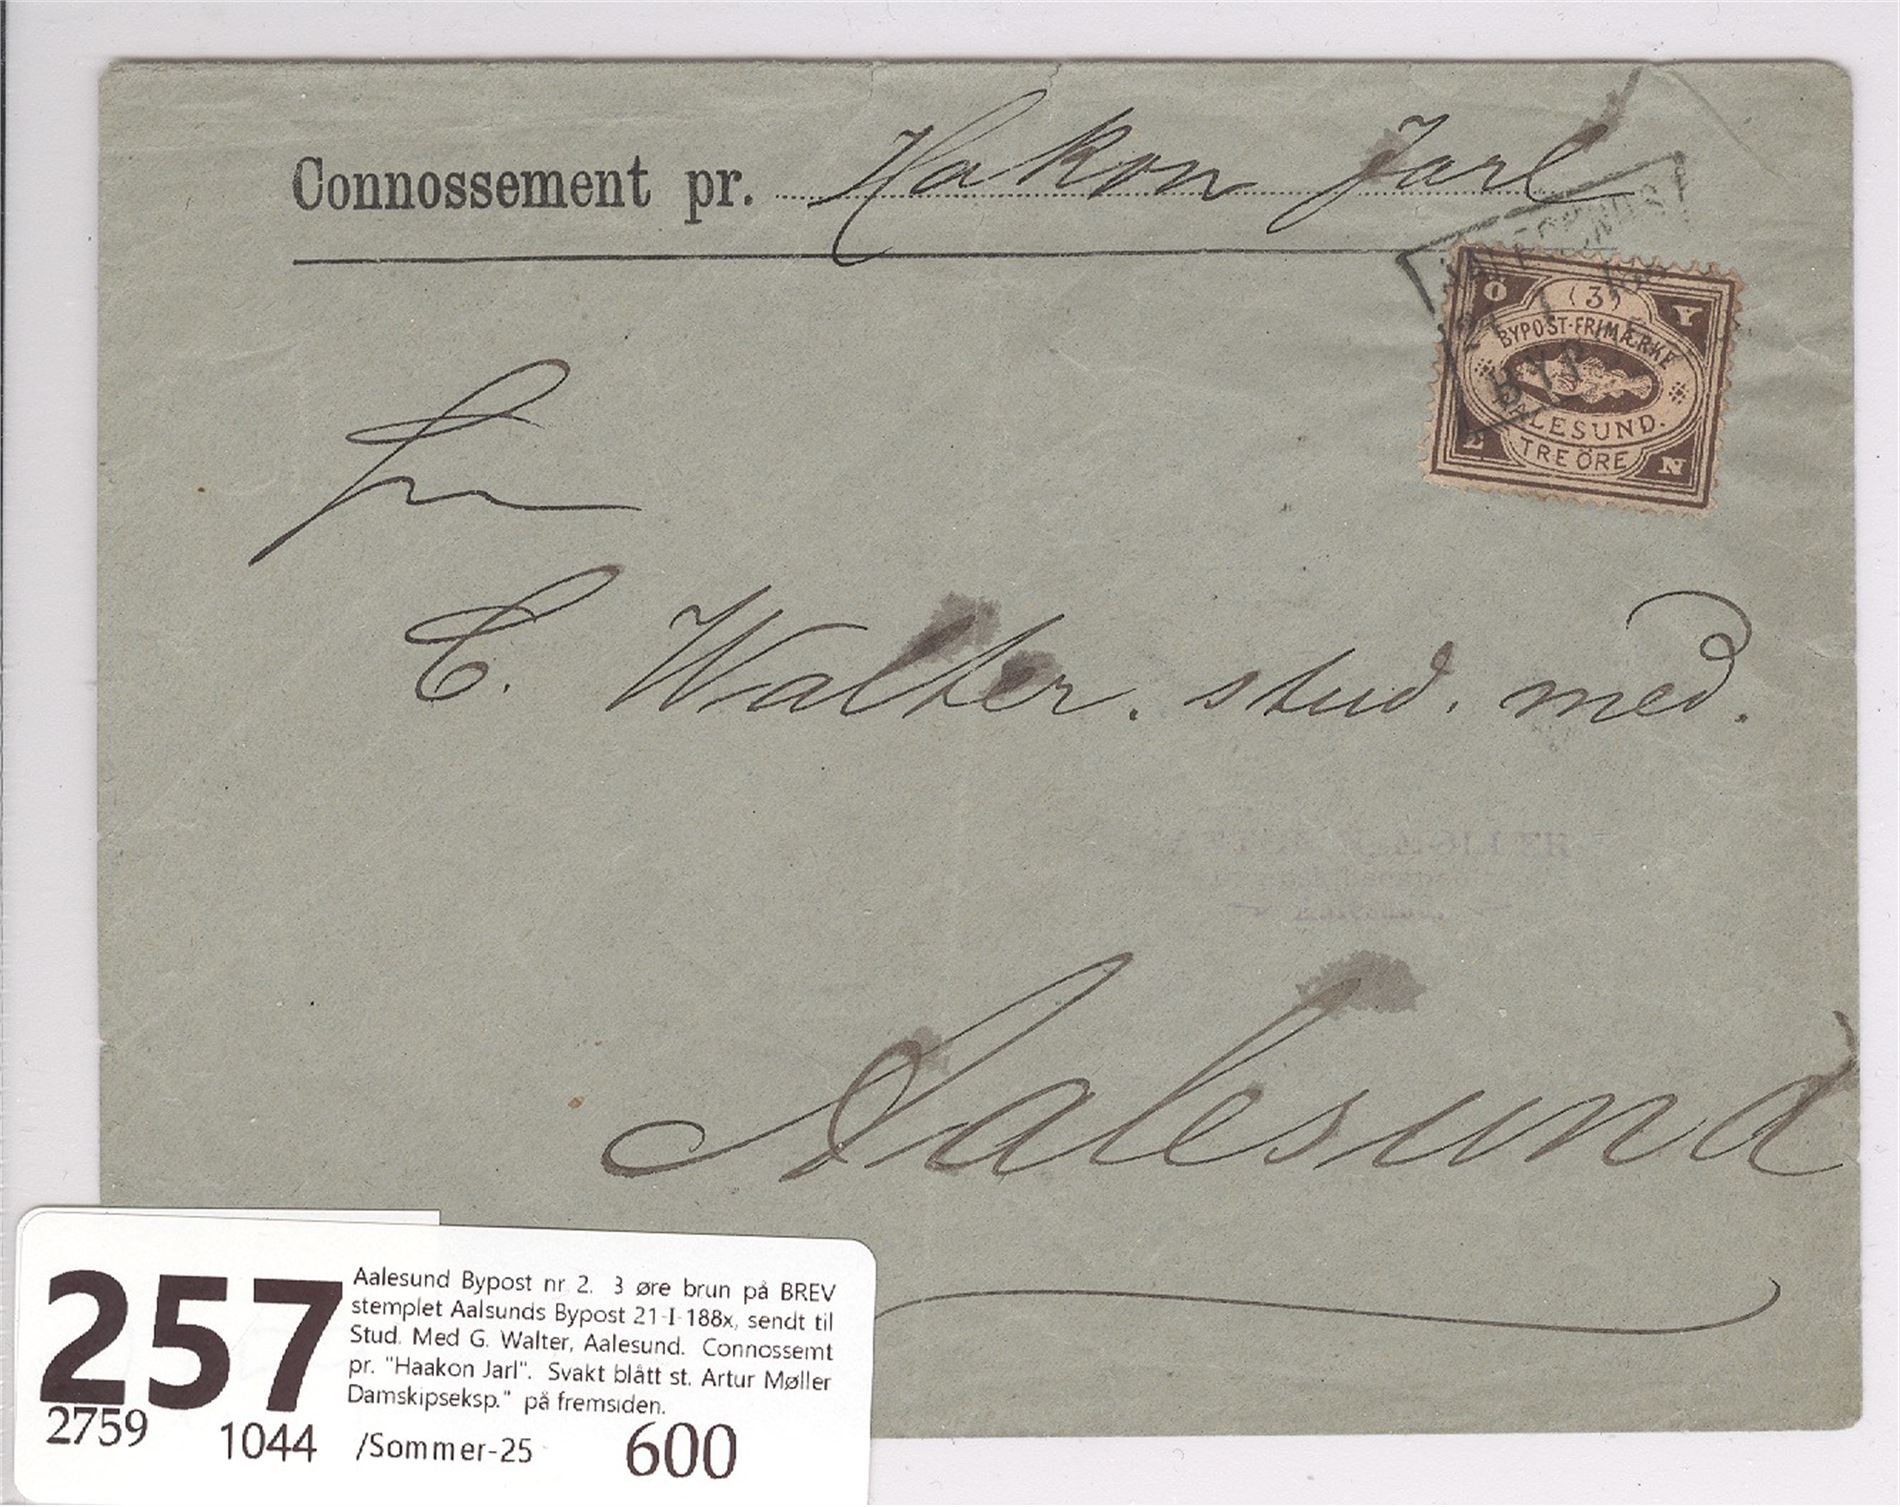 Connossement pr. Hakon Jarl
21 I 188
BYP
O (3) Y
BYPOST-FRIMÆRKE
AALESUND.
TRE ÖRE
N
Fr
C. Walter. stud. med.
Aalesund
257
2759
1044
Aalesund Bypost nr 2. 3 øre brun på BREV
stemplet Aalsunds Bypost 21-I-188x, sendt til
Stud. Med G. Walter, Aalesund. Connossemt
pr. "Haakon Jarl". Svakt blått st. Artur Møller
Damskipseksp." på fremsiden.
/Sommer-25
600